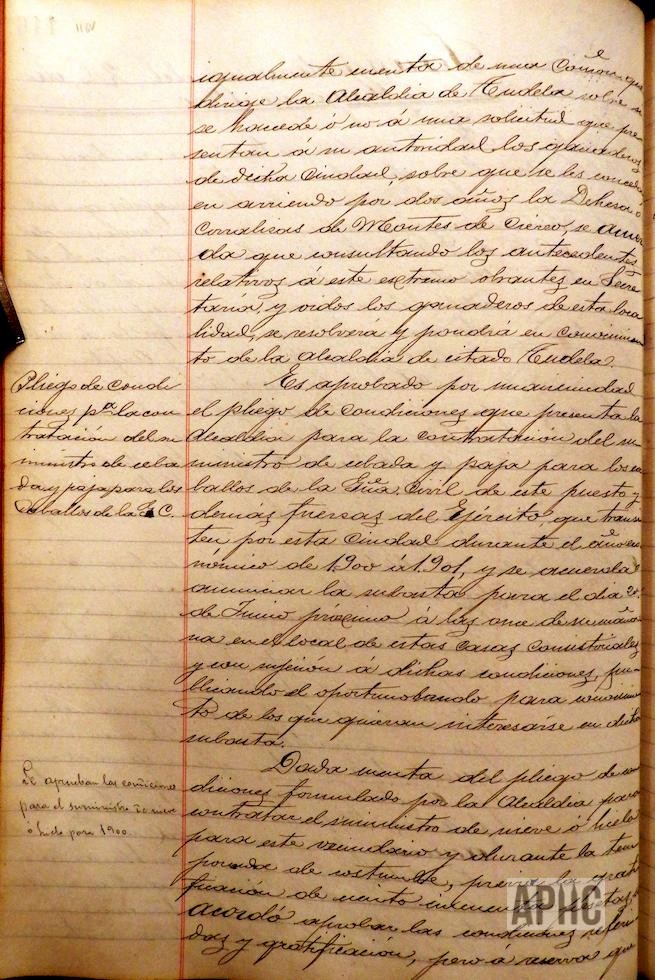 igualmente cuenta de una Comon. que
dirige la Alcaldia de Tudela sobre si
se haccede ó no á una solicitud que pre
sentan á su autoridad los ganaderos
de dicha Ciudad, sobre que se les conceda
en arriendo por dos años la Dehesa o
Corralizas de Montes de Cierzo, se acuer
da que consultando los antecedentes
relativos á este extremo obrantes en Secre
taria, y oidos los ganaderos de esta loca
lidad, se resolvera y pondrá en conocimien
to de la Alcaldia de citado Tudela.
Pliego de condi
ciones pa. la con
tratación del su
ministro de ceba
da y paja para los
Caballos de la G. C.
Es aprobado por unanimidad
el pliego de condiciones que presenta la
Alcaldia para la contratación del su
ministro de cebada y paja para los ca
ballos de la Gua. Civil de este puesto y
demas fuerzas del Ejército, que transi
ten por esta Ciudad durante el año eco
nómico de 1900 á 1901, y se acuerda
anunciar la subasta para el dia
de Junio próximo á las once de su maña
na en el local de estas Casas Consistoriales
y con sujecion á dichas condiciones, pu-
blicando el oportuno bando para conocimien
to de los que quieran interesarse en dicha
subasta.
Se aprueban las condiciones
para el suministro de nieve
ó hielo para 1900
Dada cuenta del pliego de con
diciones formulado por la Alcaldia para
contratar el suministro de nieve ó hielo
para este vecindario y durante la tem
porada de costumbre, previa la grati
ficación de ciento cincuenta pesetas, se
acordó aprobar las condiciones referi
das y gratificación, pero á reserva que
APHC